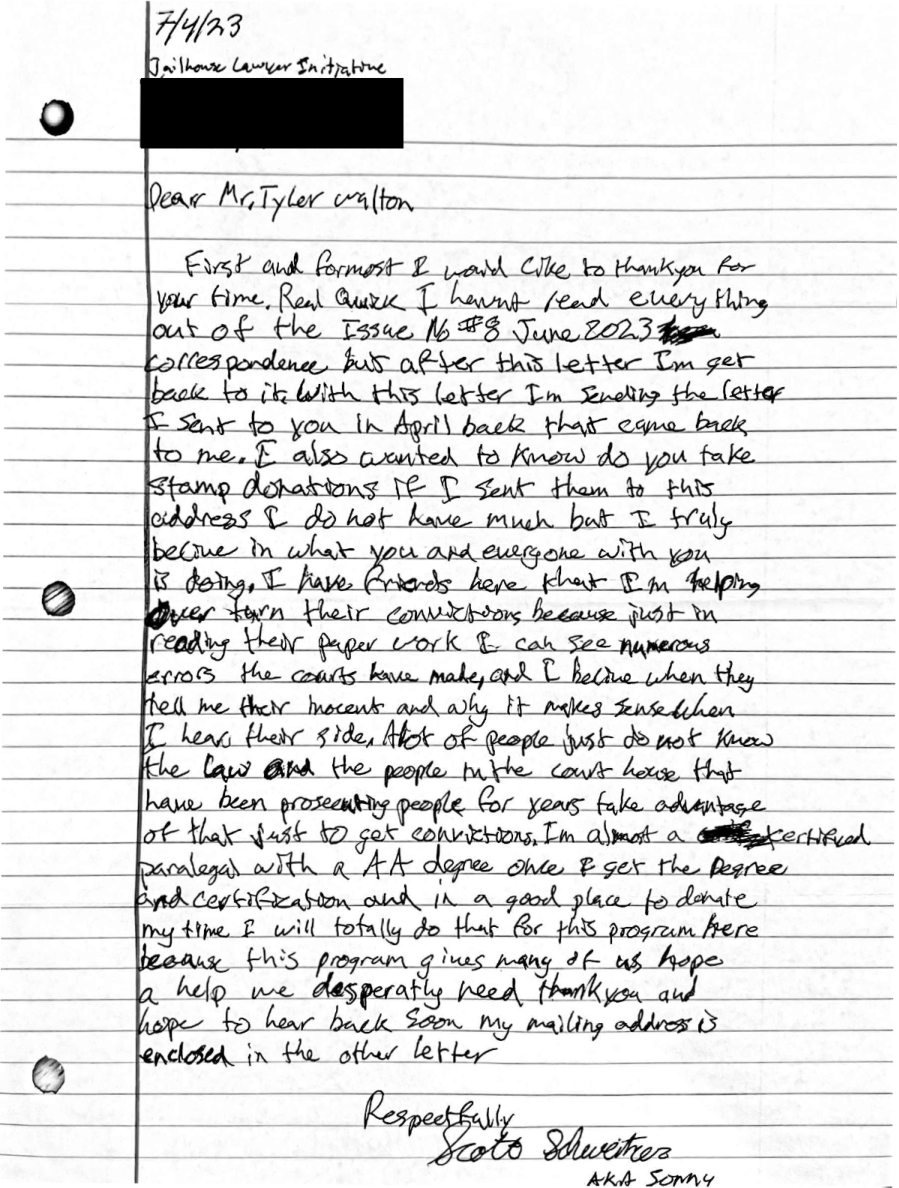 7/4/23
Jailhouse Lawyer Initiative
Dear Mr, Tyler walton
First and formost I would like to thankyou for
your time. Real Quick I havnt read everything
out of the Issue No #8 June 2023
correspondence but after this letter Im get
back to it. With this letter Im sending the letter
I sent to you in April back that came back
to me. I also wanted to know do you take
stamp donations if I sent them to this
address I do not have much but I truly
belive in what you and everyone with you
is doing. I have friends here that I'm helping
over turn their convictions because just in
reading their paper work I can see numerous
errors the courts have made, and I belive when they
tell me their inocent and why it makes sense when
I hear their side. Alot of people just do not know
the law and the people in the court house that
have been prosecuting people for years take advantage
of that just to get convictions. Im almost a certified
paralegal with a AA degree once I get the Degree
and certification and in a good place to donate
my time I will totally do that for this program here
because this program gives many of us hope
a help we desperatly need thankyou and
hope to hear back soon my mailing address is
enclosed in the other letter
Respectfully
Schweitzer
AKA Sonny